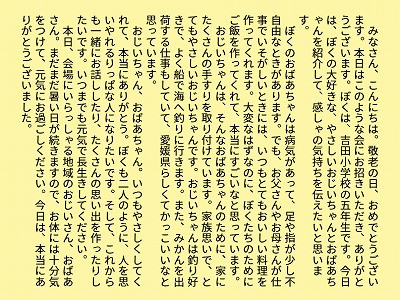 みなさん、こんにちは。敬老の日、おめでとうござい
ます。本日はこのような会にお招きいただき、ありがと
うございます。ぼくは、吉田小学校の五年生です。今日
は、ぼくの大好きな、やさしいおじいちゃんとおばあち
ゃんを紹介して、感しゃの気持ちを伝えたいと思いま
す。
ぼくのおばあちゃんは病気があって、足や指が少し不
自由なときがあります。でも、お父さんやお母さんが仕
事でいそがしいときには、いつもとてもおいしい料理を
作ってくれます。大変なはずなのに、ぼくたちのために
ご飯を作ってくれて、本当にすごいなと思っています。
おじいちゃんは、そんなおばあちゃんのために、家に
たくさんの手すりを取り付けています。家族思いで、と
てもやさしいおじいちゃんです。おじいちゃんは釣り好
きで、よく船で海へ釣りに行きます。また、みかんを出
荷する仕事もしていて、愛媛県らしくてかっこいいなと
思っています。
おじいちゃん、おばあちゃん。いつもやさしくしてく
れて、本当にありがとう。ぼくも二人のように、人を思
いやれるりっぱな人になりたいです。そして、これから
も一緒にお話ししたり、たくさんの思い出を作ったりし
たいです。いつまでも元気で長生きしてください。
本日、会場にいらっしゃる地域のおじいさん、おばあ
さん。まだまだ暑い日が続きますので、お体には十分気
をつけて、元気にお過ごしください。今日は、本当にあ
りがとうございました。